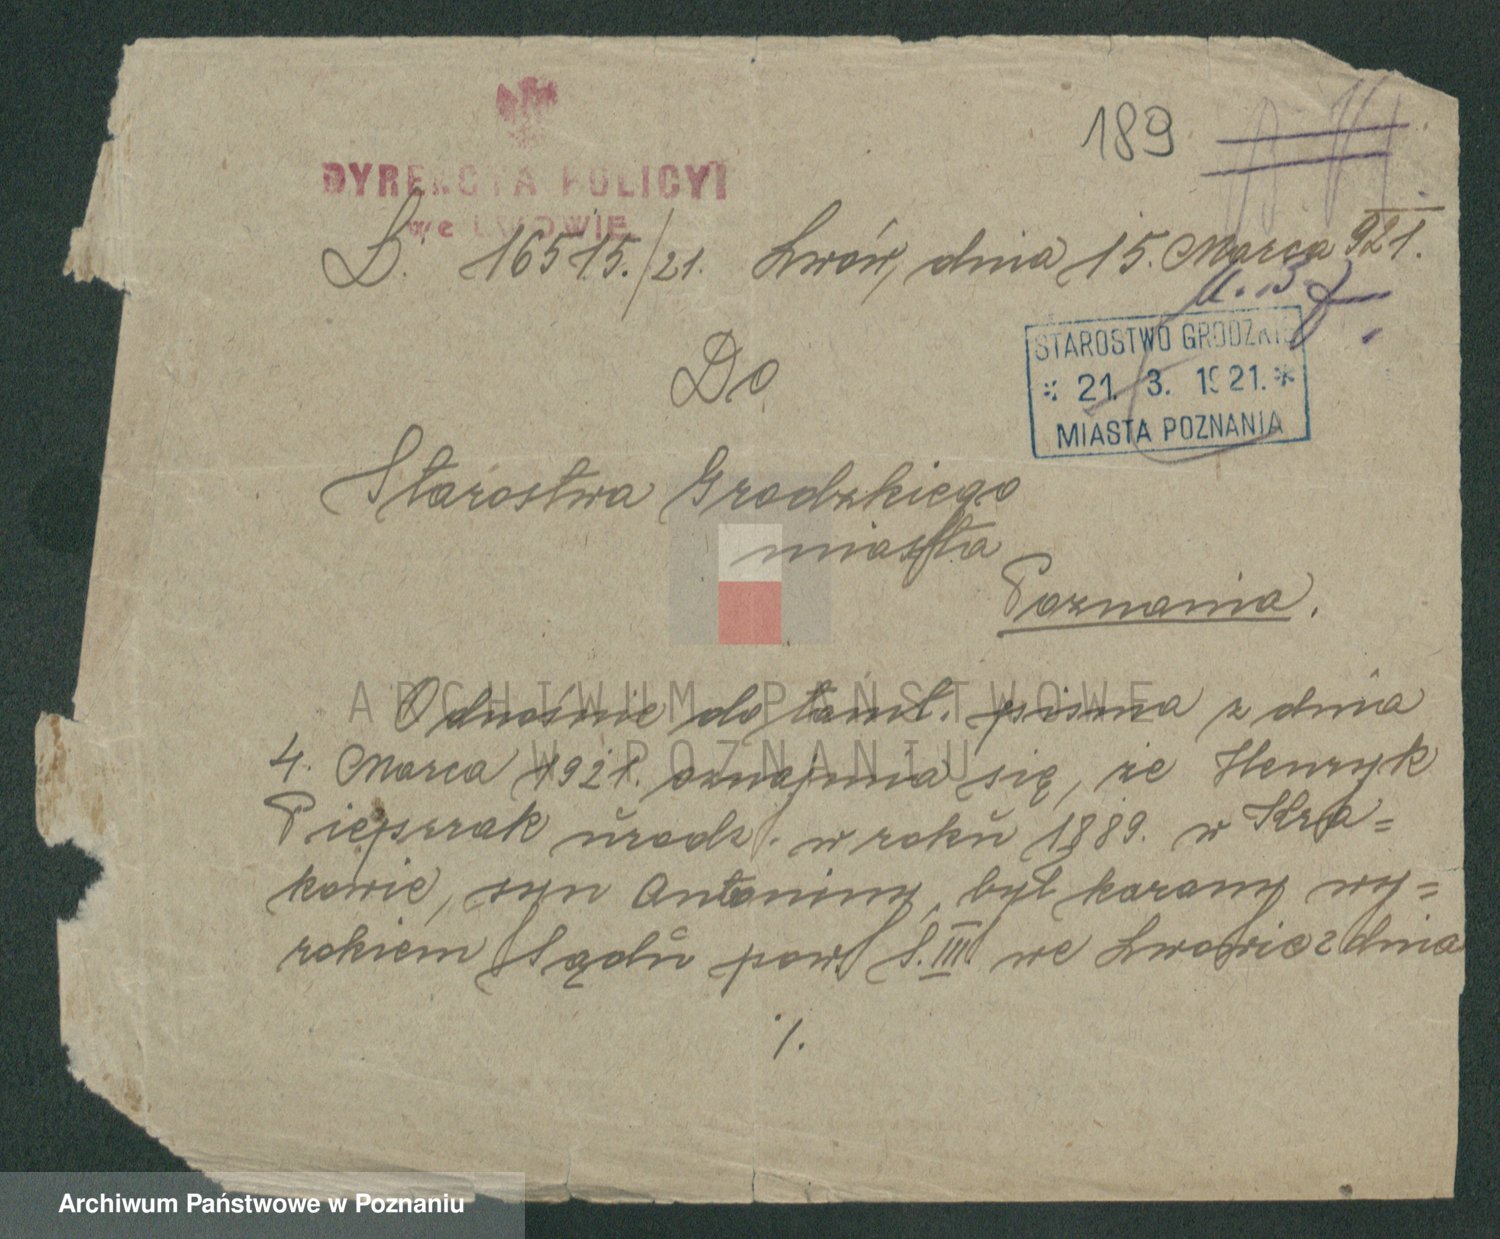 189
DYREKCYA POLICYI
we LWOWIE
L. 16515./21. Lwów, dnia 15. Marca 921.
STAROSTWO GRODZKIE
* 21. 3. 1921. *
MIASTA POZNANIA
Do
Starostwa Grodzkiego
miasta
Poznania.
Odnośnie do tamt. pisma z dnia
4. Marca 1921. oznajmia się, że Henryk
Piepszak urodz. w roku 1889. w Kra=
kowie, syn Antoniny, był karany wy=
rokiem Sądu pow. S. III. we Lwowie z dnia
./.
ARCHIWUM PAŃSTWOWE
W POZNANIU
Archiwum Państwowe w Poznaniu